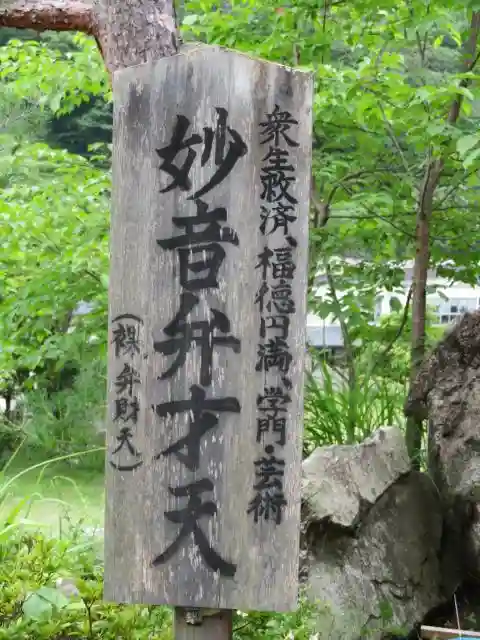 衆生救済、福徳円満、学門・芸術
妙音弁才天
(裸弁財天)